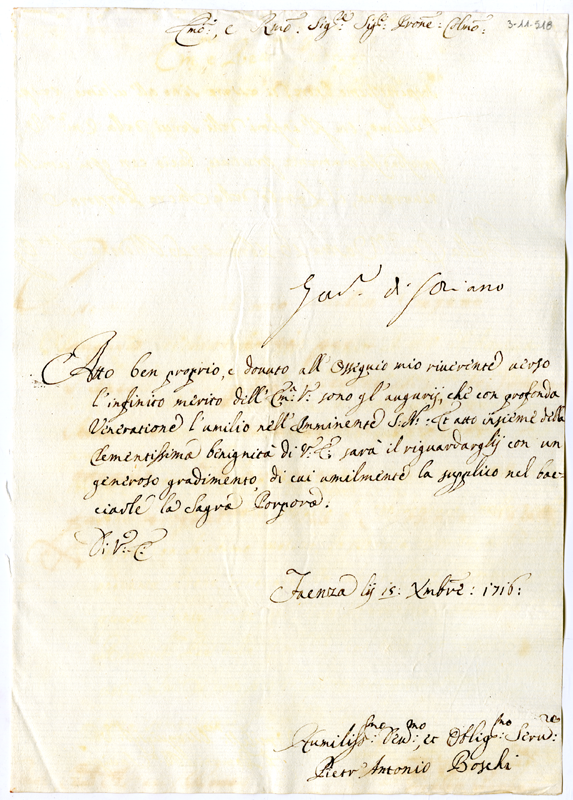 Emo:, e Rmo. Sigre: Sigr: Prone: Colmo:
3-11-518
di
Atto ben proprio, e dovuto all'Ossequio mio riverente verso
l'infinito merito dell'Em: V: sono gl'augurij, che con profonda
Veneratione l'umilio nell'Imminente S. N.: Et atto insieme della
Clementissima benignità di V: E: sarà il riguardarglj con un
generoso gradimento, di cui umilmente la supplico nel bac-
ciarle la Sagra Porpora:
Di V: E:
Faenza lij 15: Xmbre: 1716:
Humiliss:mo Devmo:, et Obligmo: Servre:
Pietr'Antonio Boschi